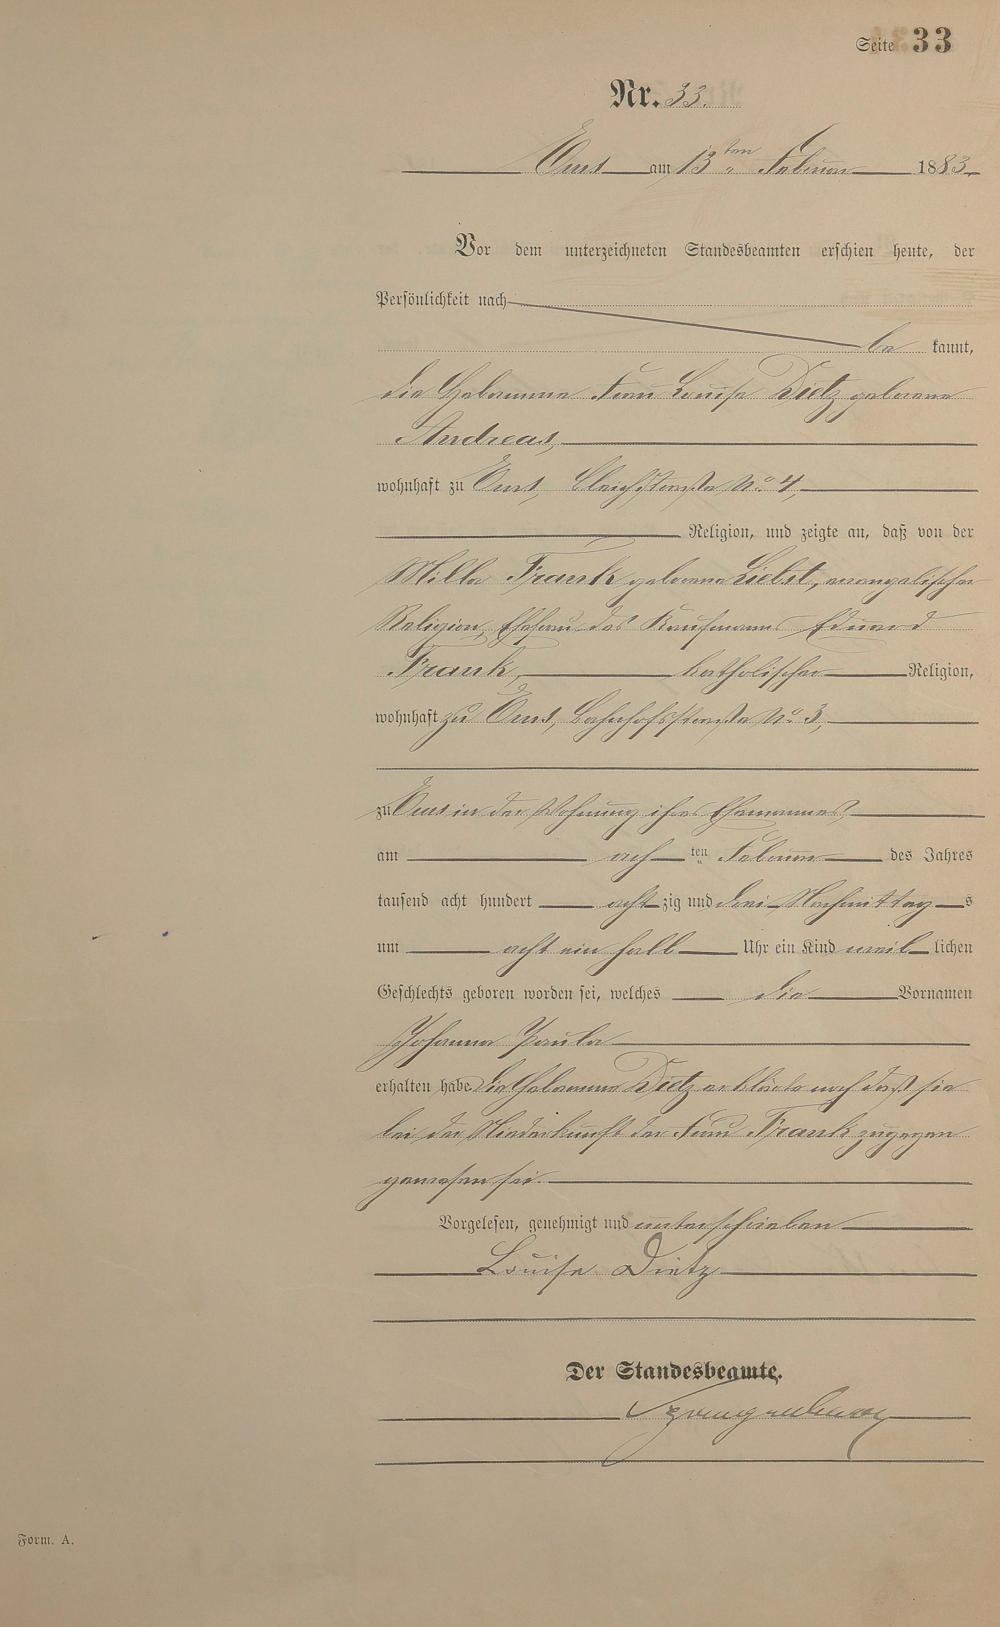 Seite 33
Nr. 33.
Ems am 13ten Februar 1883.
Vor dem unterzeichneten Standesbeamten erschien heute, der
Persönlichkeit nach
be kannt,
die Hebamme Frau Louise Dietz geborene
Andreas,
wohnhaft zu Ems, Bleichstraße No. 4,
Religion, und zeigte an, daß von der
Milla Frank geborene Liebst, evangelischer
Religion, Ehefrau des Kaufmanns Eduard
Frank, katholischer Religion,
wohnhaft zu Ems, Bahnhofsstraße No. 3,
zu Ems in der Wohnung ihres Ehemannes,
am ach ten Februar des Jahres
tausend acht hundert acht zig und drei Nachmittag s
um acht ein halb Uhr ein Kind weib lichen
Geschlechts geboren worden sei, welches die Vornamen
Johanna Paula
erhalten habe die Hebamme Dietz erklärte noch daß sie
bei der Niederkunft der Frau Frank zugegen
gewesen sei.
Vorgelesen, genehmigt und unterschrieben
Louise Dietz
Der Standesbeamte.
Form. A.